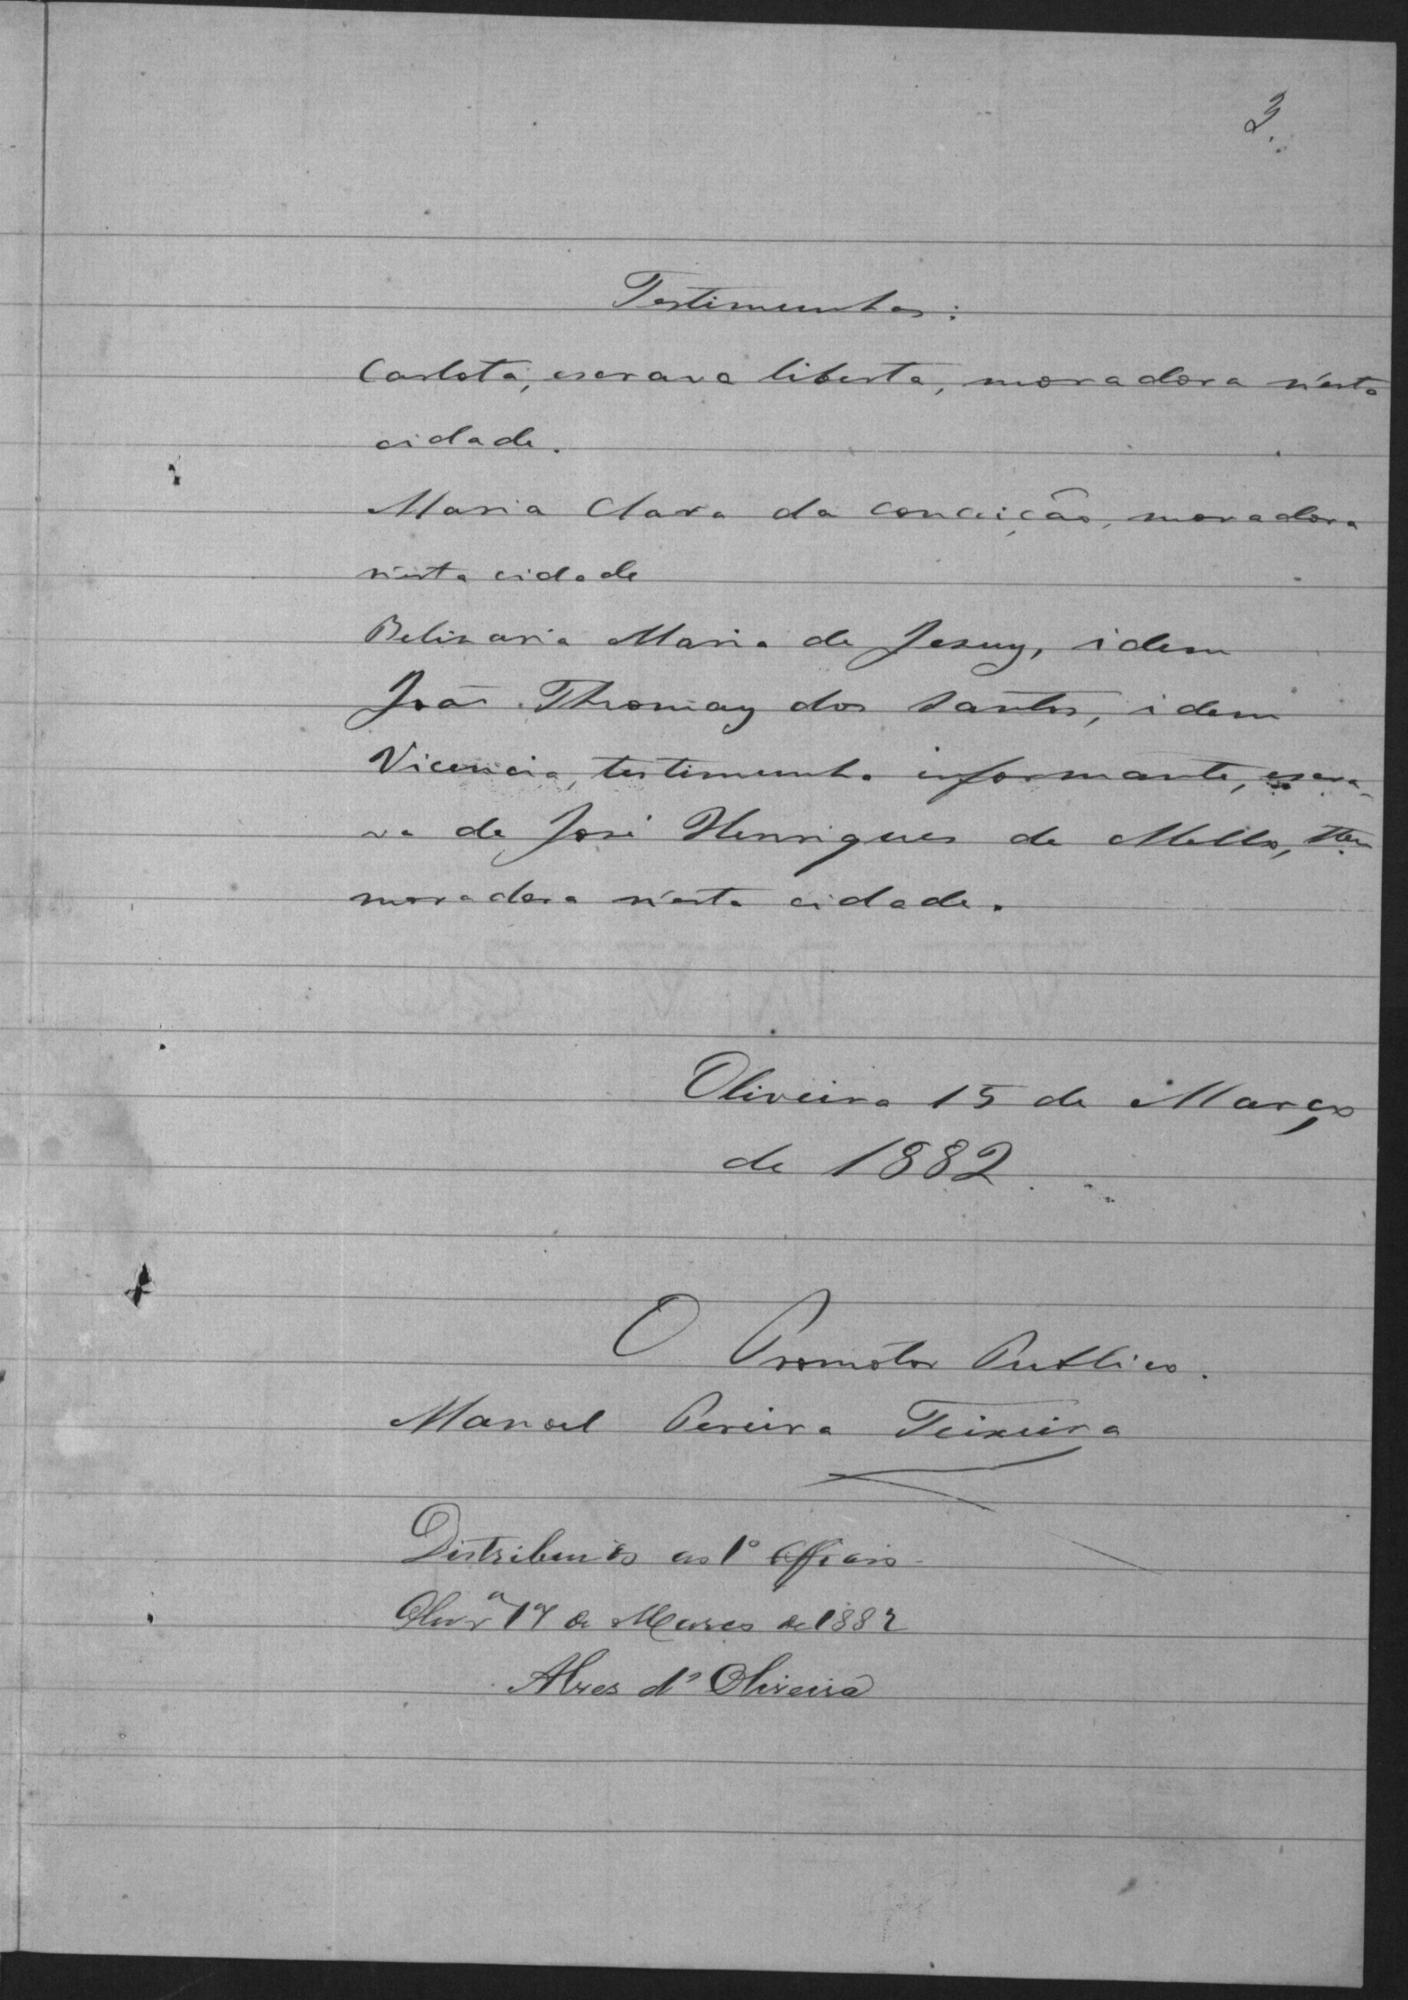 3.
Testimunhas:
Carlota, escrava liberta, moradora n'esta
cidade.
Maria Clara da Conceição, moradora
n'esta cidade
Belizaria Maria de Jesus, idem
João Thomas dos Santos, idem
Vicencia, testimunha informante, escra-
va de José Henriques de Mello,
moradora n'esta cidade.
Oliveira 15 de Março
de 1882
O Promotor Publico.
Manoel Pereira Teixeira
Distribuido ao 1º Officio
Olivrª 17 de Março de 1882
Alves d'Oliveira